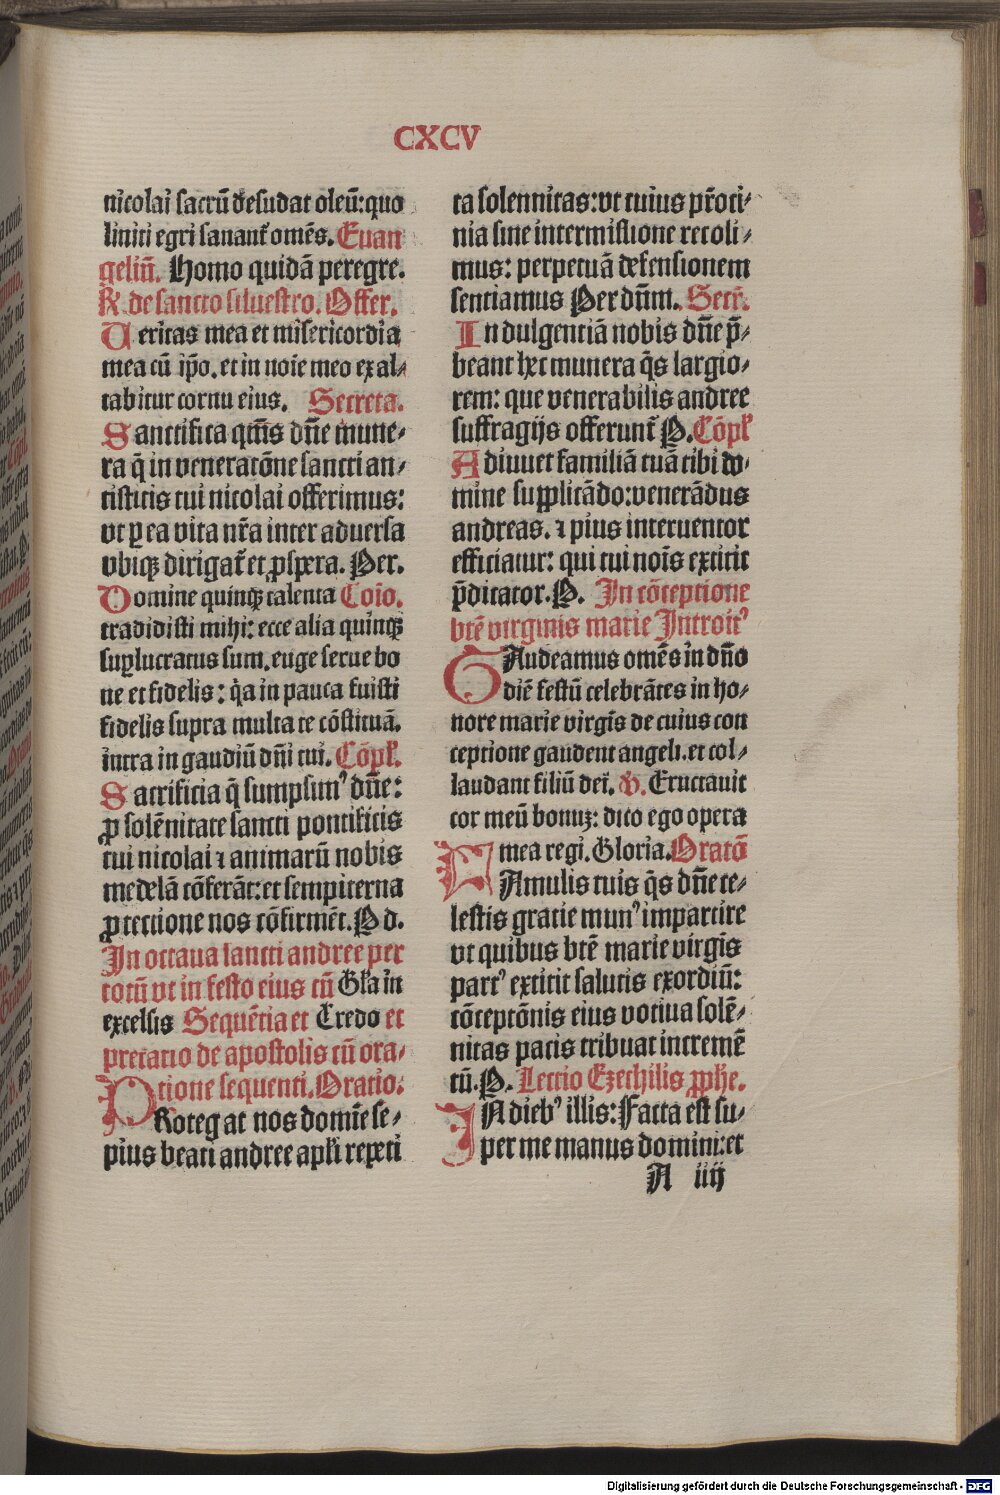 CXCV
nicolai sacrū desudat oleū:quo
liniti egri sanant᷑ omēs. Euan
geliū. Homo quidā peregre.
R̸. de sancto siluestro. Offer.
Ueritas mea et misericordia
mea cū ip̄o. et in noīe meo exal⸗
tabitur cornu eius. Secreta.
Sanctifica qm̄s dn̄e mune⸗
ra q̄ in veneratōne sancti an⸗
tistitis tui nicolai offerimus:
vt ꝑ ea vita nr̄a inter aduersa
vbiqꝫ dirigat᷑ et ꝓspera. Per.
Domine quinqꝫ talenta Cōio.
tradidisti mihi: ecce alia quinqꝫ
suꝑlucratus sum. euge serue bo
ne et fidelis: q̇a in pauca fuisti
fidelis supra multa te cōstituā.
intra in gaudiū dn̄i tui. Cōpl̄.
Sacrificia q̄ sumpsimꝰ dn̄e:
ꝓ solēnitate sancti pontificis
tui nicolai ⁊ animarū nobis
medelā cōferāt: et sempiterna
ꝓtectione nos cōfirmēt. P d.
In octaua sancti andree per
totū vt in festo eius cū Gl̄a in
excelsis Sequētia et Credo et
prefatio de apostolis cū ora⸗
tione sequenti. Oratio.
PRotegat nos domīe se⸗
pius beati andree apl̄i repeti
ta solennitas: vt cuius pr̄oci⸗
nia sine intermissione recoli⸗
mus: perpetuā defensionem
sentiamus Per dn̄m. Secr̄.
Indulgentiā nobis dn̄e p̄⸗
beant hec munera q̄s largio⸗
rem: que venerabilis andree
suffragijs offerunt᷑ P. Cōpl̄
Adiuuet familiā tuā tibi do⸗
mine supplicādo: venerādus
andreas. ⁊ pius interuentor
efficiatur: qui tui noīs extitit
p̄dicator. P. In cōceptione
btē virginis marie Introitꝰ
GAudeamus omēs in dn̄o
diē festū celebrātes in ho⸗
nore marie virgīs de cuius con
ceptione gaudent angeli. et col⸗
laudant filiū dei. V̸. Eructauit
cor meū bonuꝫ: dico ego opera
mea regi. Gloria. Oratō
FAmulis tuis q̄s dn̄e ce⸗
lestis gratie munꝰ impartire
vt quibus btē marie virgīs
partꝰ extitit salutis exordiū:
cōceptōnis eius votiua solē⸗
nitas pacis tribuat incremē
tū. P. Lectio Ezechilis ꝓphe.
IN diebꝰ illis: Facta est su⸗
per me manus domini: et
A iiij
Digitalisierung gefördert durch die Deutsche Forschungsgemeinschaft - DFG